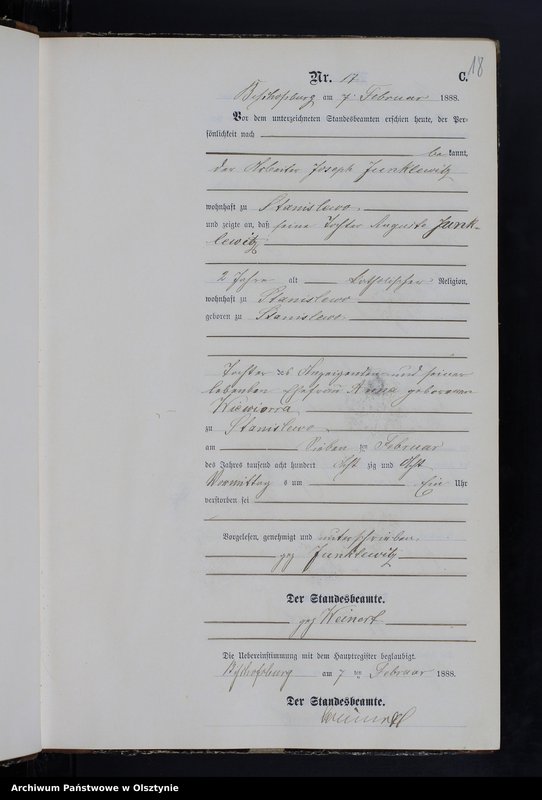 18
Nr. 17 C.
Bischofsburg am 7. Februar 1888.
Vor dem unterzeichneten Standesbeamten erschien heute, der Per-
sönlichkeit nach
be kannt,
der Arbeiter Joseph Junklewitz
wohnhaft zu Stanislewo
und zeigte an, daß seine Tochter Auguste Junk-
lewitz
2 Jahre alt katholischer Religion,
wohnhaft zu Stanislewo
geboren zu Stanislewo
Tochter des Anzeigenden und seiner
lebenden Ehefrau Anna geborenen
Wiewiorra
zu Stanislewo
am Sieben ten Februar
des Jahres tausend acht hundert Acht zig und Acht
Vormittag s um Ein Uhr
verstorben sei
Vorgelesen, genehmigt und unterschrieben.
gez Junklewitz
Der Standesbeamte.
gez Weinert
Die Uebereinstimmung mit dem Hauptregister beglaubigt.
Bischofsburg am 7 ten Februar 1888.
Der Standesbeamte.
Weinert
Archiwum Państwowe w Olsztynie